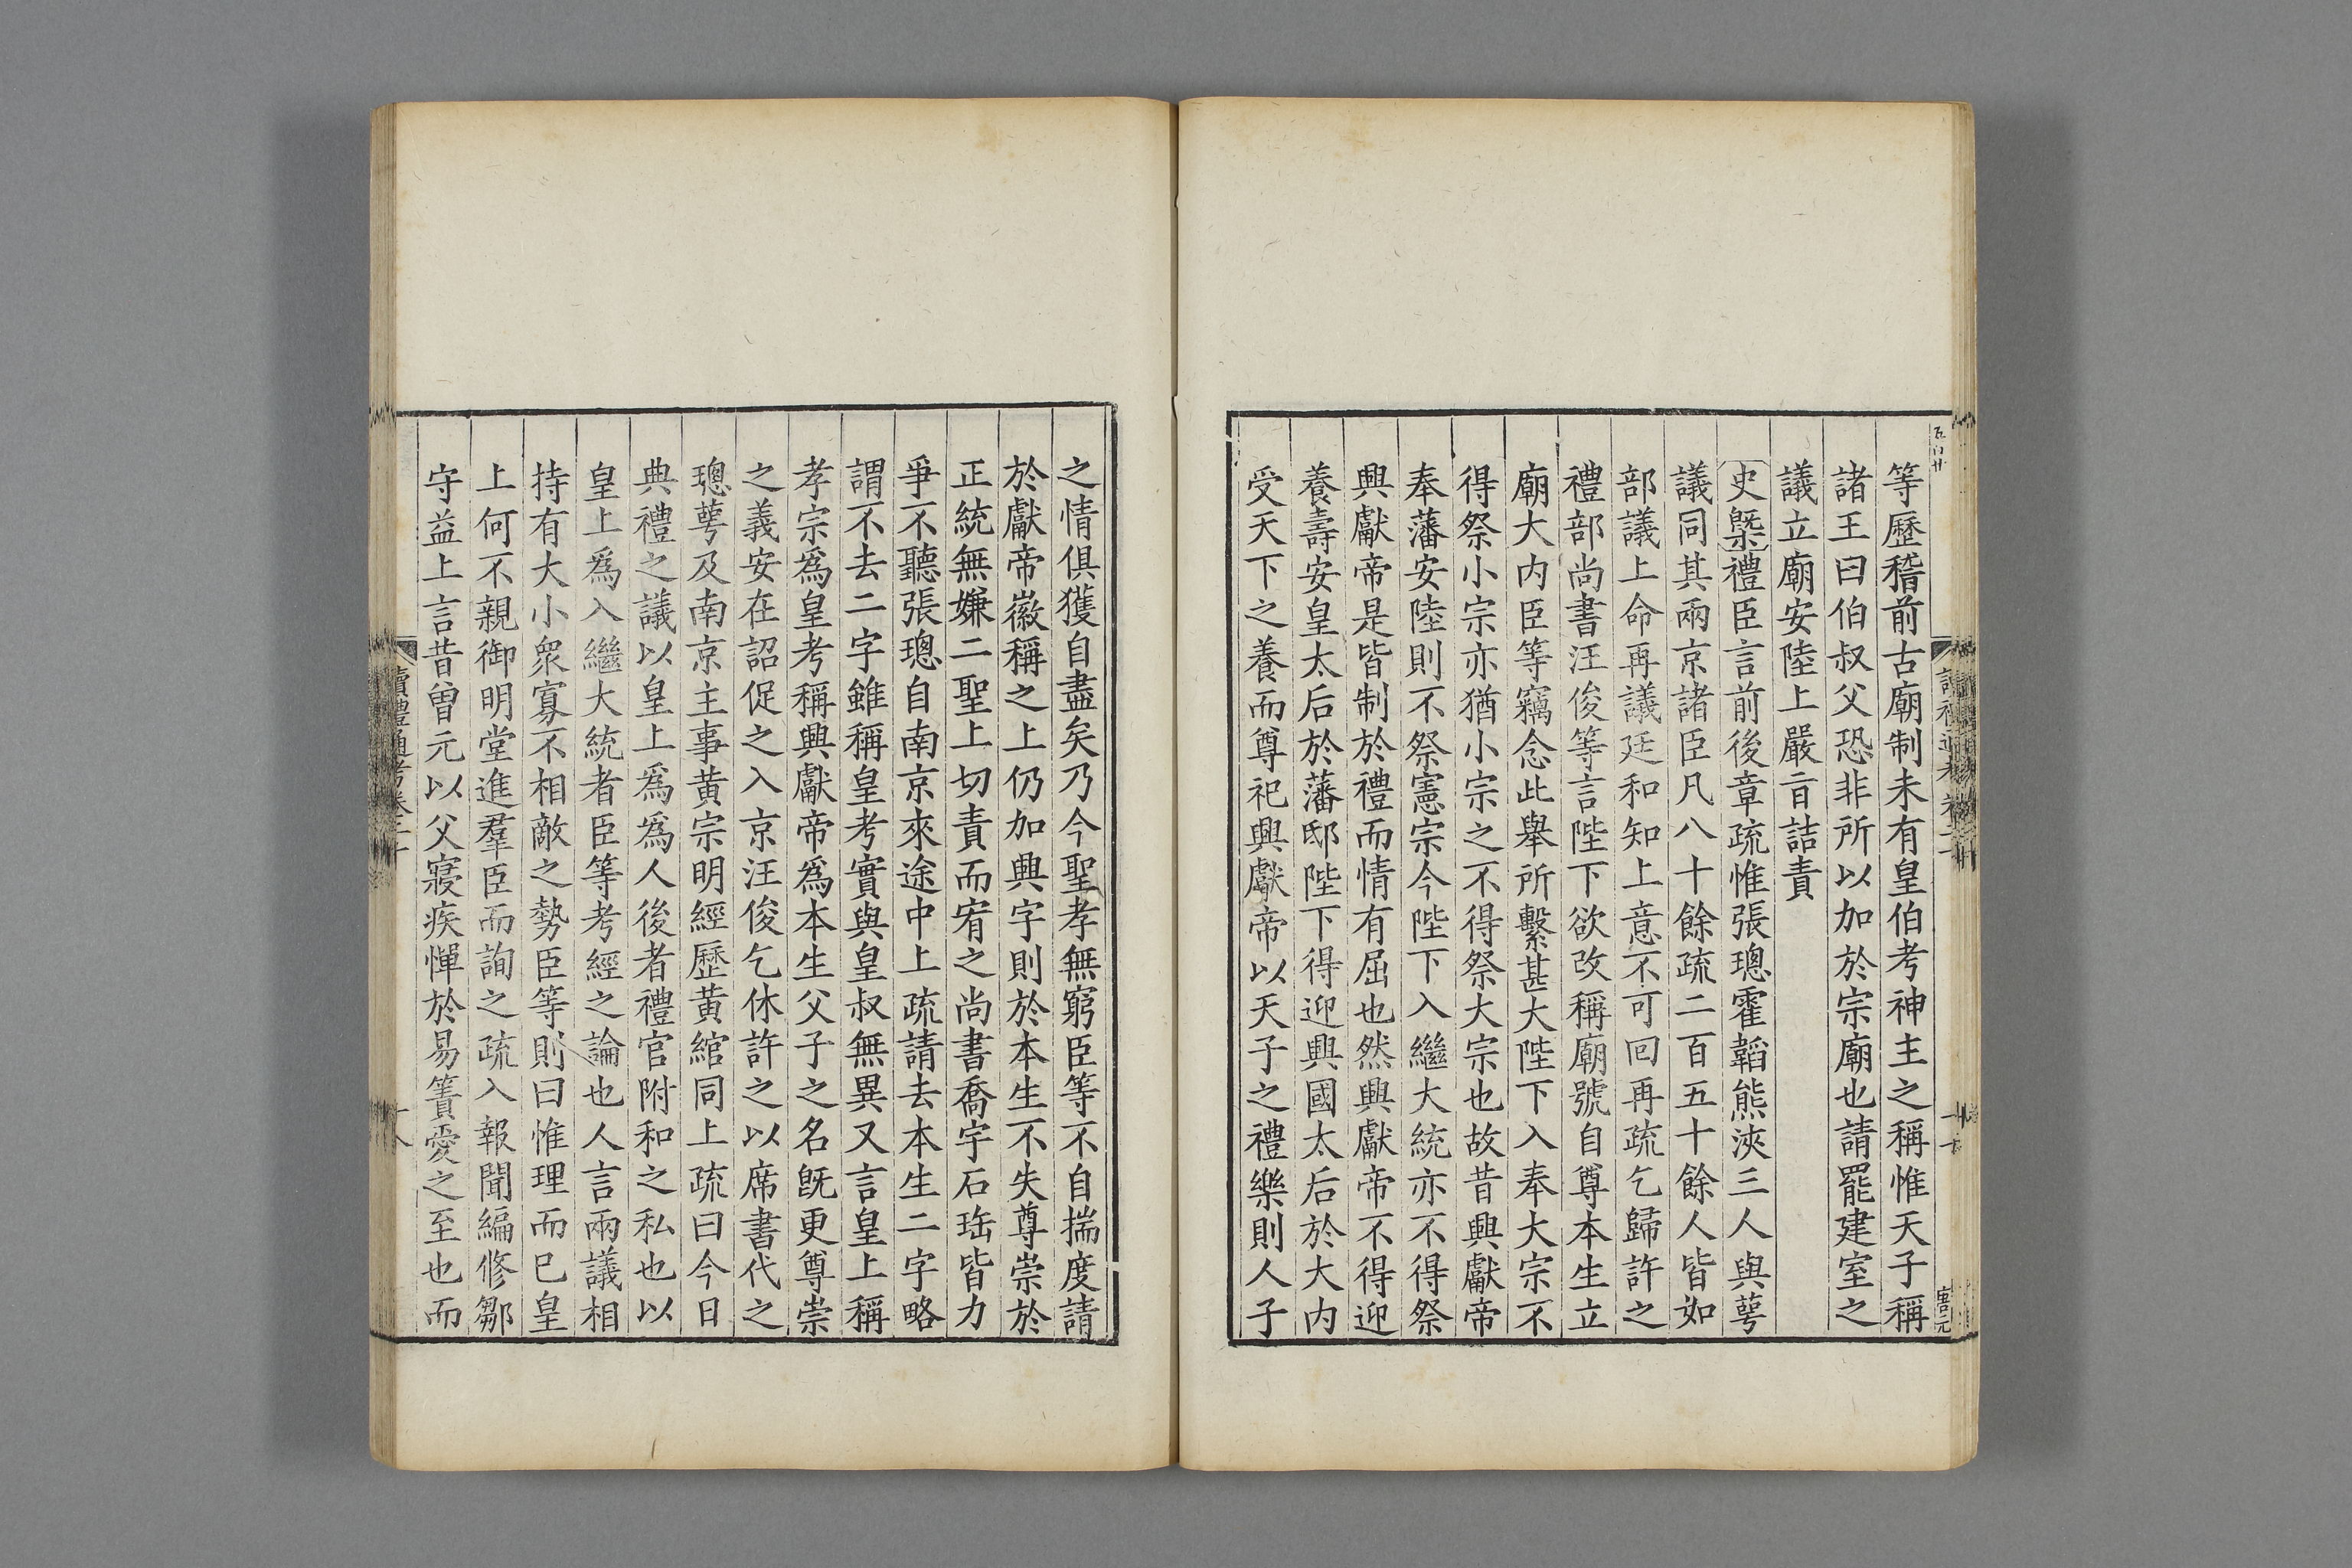 等歷稽前古廟制未有皇伯考神主之稱惟天子稱
諸王曰伯叔父恐非所以加於宗廟也請罷建室之
議立廟安陸上嚴旨詰責
史槩禮臣言前後章疏惟張璁霍韜熊浹三人與萼
議同其兩京諸臣凡八十餘疏二百五十餘人皆如
部議上命再議廷和知上意不可回再疏乞歸許之
禮部尚書汪俊等言陛下欲改稱廟號自尊本生立
廟大内臣等竊念此舉所繫甚大陛下入奉大宗不
得祭小宗亦猶小宗之不得祭大宗也故昔興獻帝
奉藩安陸則不祭憲宗今陛下入繼大統亦不得祭
興獻帝是皆制於禮而情有屈也然興獻帝不得迎
養壽安皇太后於藩邸陛下得迎興國太后於大内
受天下之養而尊祀興獻帝以天子之禮樂則人子
之情俱獲自盡矣乃今聖孝無窮臣等不自揣度請
於獻帝徽稱之上仍加興字則於本生不失尊崇於
正統無嫌二聖上切責而宥之尚書喬宇石珤皆力
爭不聽張璁自南京來途中上疏請去本生二字略
謂不去二字雖稱皇考實與皇叔無異又言皇上稱
孝宗爲皇考稱興獻帝爲本生父子之名旣更尊崇
之義安在詔促之入京汪俊乞休許之以席書代之
璁萼及南京主事黃宗明經歷黃綰同上疏曰今日
典禮之議以皇上爲爲人後者禮官附和之私也以
皇上爲入繼大統者臣等考經之論也人言兩議相
持有大小衆寡不相敵之勢臣等則曰惟理而已皇
上何不親御明堂進羣臣而詢之疏入報聞編修鄒
守益上言昔曾元以父寢疾憚於易簀愛之至也而
讀禮通考卷二十
十八